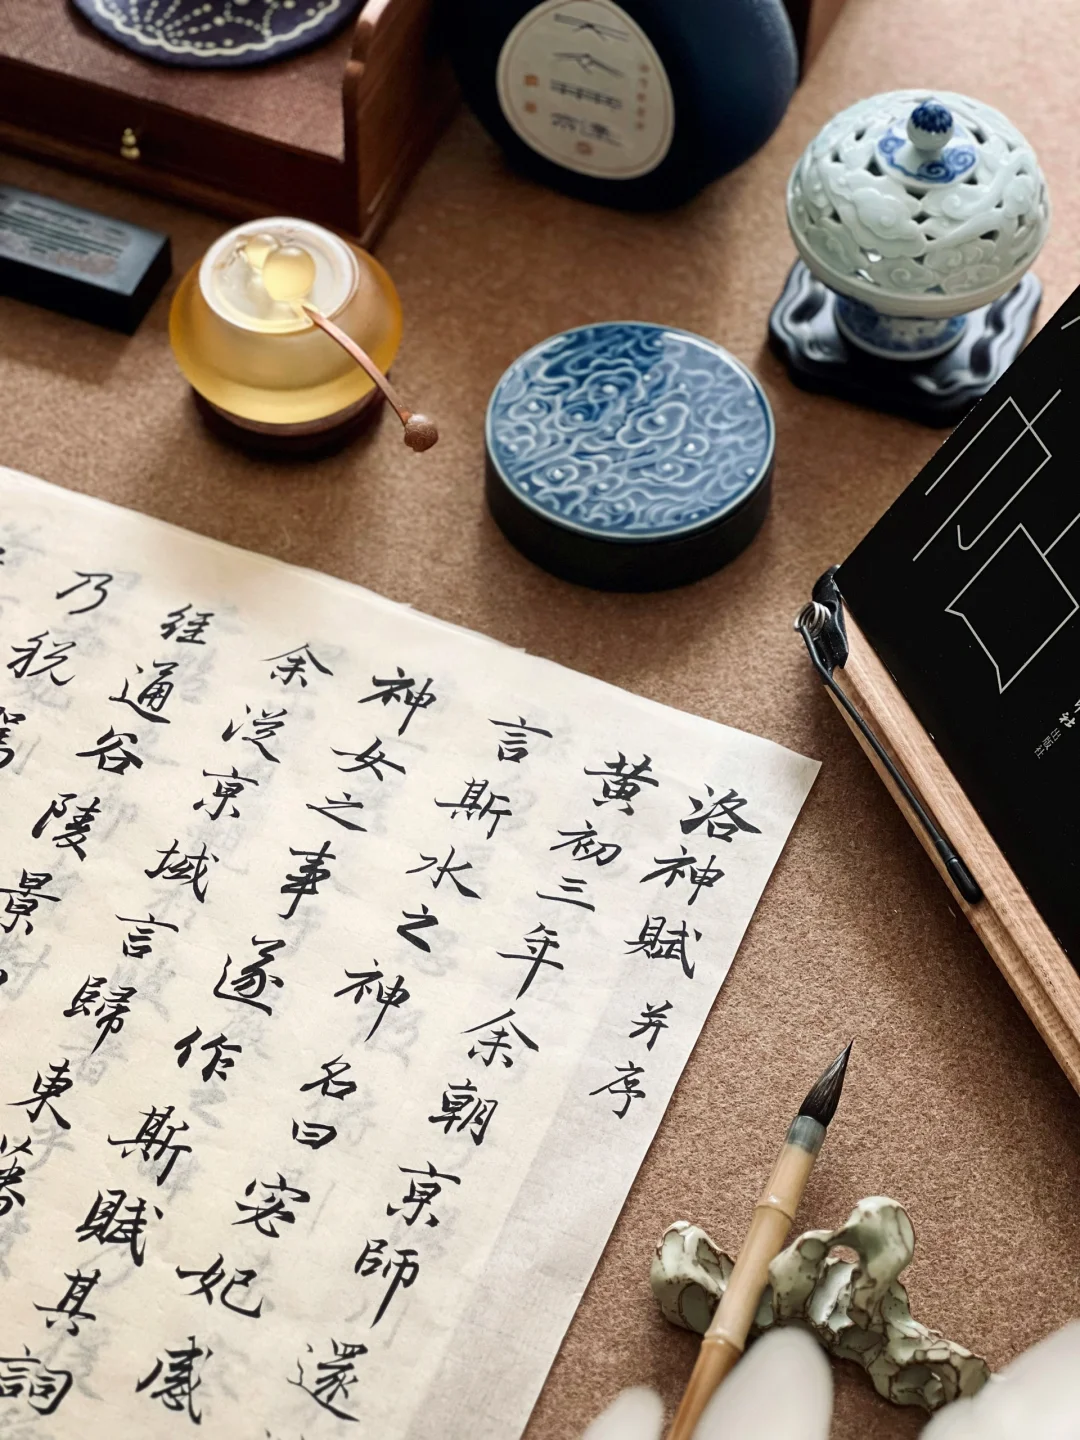 洛神賦 并序
黄初三年余朝亰師還
言斯水之神名曰宓妃感
神女之事遂作斯賦其詞
余従亰域言歸東藩
経通谷陵景
乃税駕
出版社